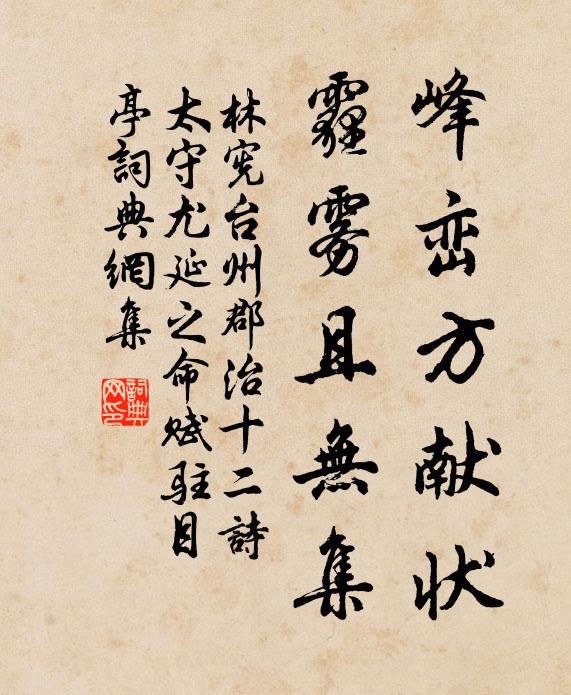 峰峦方献状
霾雾且無集
林宪台州郡治十二詩
太守尤延之命赋駐目
亭詞典網集
詞典
网印